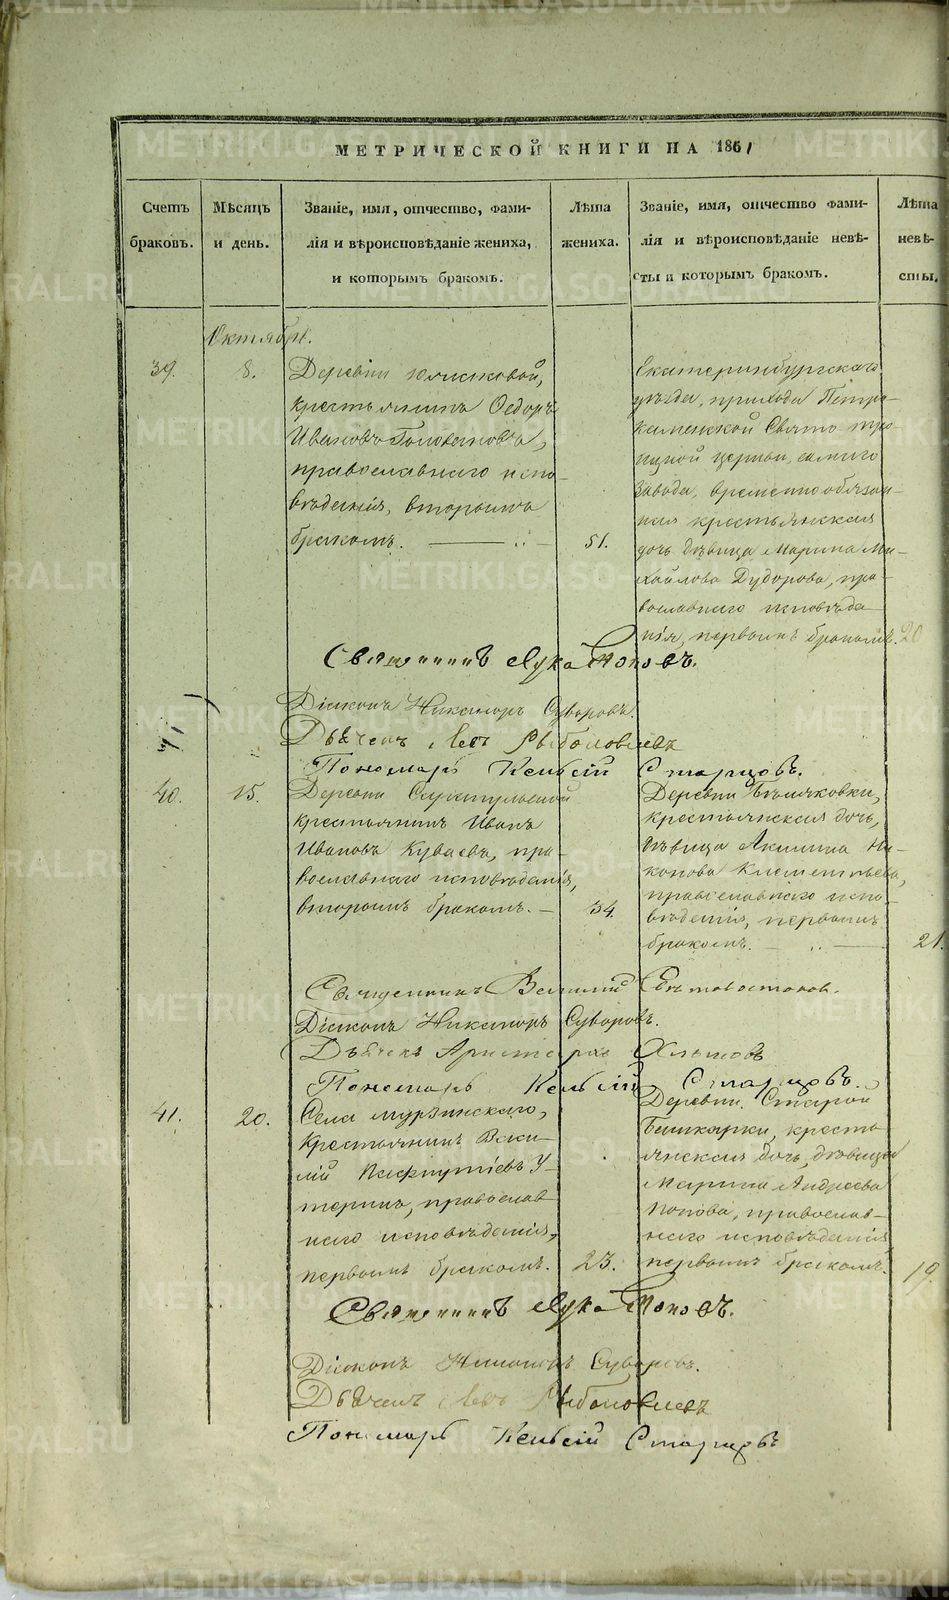 МЕТРИЧЕСКОЙ КНИГИ НА 1861
Счетъ браковъ.
Мѣсяцъ и день.
Званіе, имя, отчество, фами-
лія и вѣроисповѣданіе жениха,
и которымъ бракомъ.
Лѣта жениха.
Званіе, имя, отчество фами-
лія и вѣроисповѣданіе невѣ-
сты и которымъ бракомъ.
Лѣта невѣ-
сты.
Октябрь.
39.
8.
Деревни
крестьянинъ Ѳедоръ
Ивановъ Головановъ,
православнаго испо-
вѣданія, вторымъ
бракомъ.
51.
Екатеринбургскаго
уѣзда, прихода Петро-
каменской Свято тро-
ицкой церкви, самаго
завода, временнообязан-
ная крестьянская
дочь дѣвица Марина Ми-
хайлова Дудорова, пра-
вославнаго исповѣда-
нія, первымъ бракомъ.
20
Священникъ Лука Поповъ.
Діаконъ Никаноръ Суворовъ.
Дьячекъ Левъ Рыболовлевъ
Пономарь Старцовъ.
40.
15.
Деревни
крестьянинъ Иванъ
Ивановъ Куваевъ, пра-
вославнаго исповѣданія,
вторымъ бракомъ.
34.
Деревни Бѣляковки,
крестьянская дочь,
дѣвица Акилина Ни-
конова Клементьева,
православнаго испо-
вѣданія, первымъ
бракомъ.
21.
Священникъ Василій
Діаконъ Никаноръ Суворовъ.
Дьячекъ Аристархъ
Пономарь Старцовъ.
41.
20.
Села мурзинскаго,
крестьянинъ Васи-
лій Пафнутіевъ У-
теринъ, православ
наго исповѣданія,
первымъ бракомъ.
23.
Деревни Старой
Башкарки, кресть
янская дочь, дѣвица
Марина Андреева
Попова, православ-
наго исповѣданія
первымъ бракомъ.
19.
Священникъ Лука Поповъ.
Діаконъ Никаноръ Суворовъ.
Дьячекъ Левъ Рыболовлевъ
Пономарь Старцовъ
METRIKI.GASO-URAL.RU